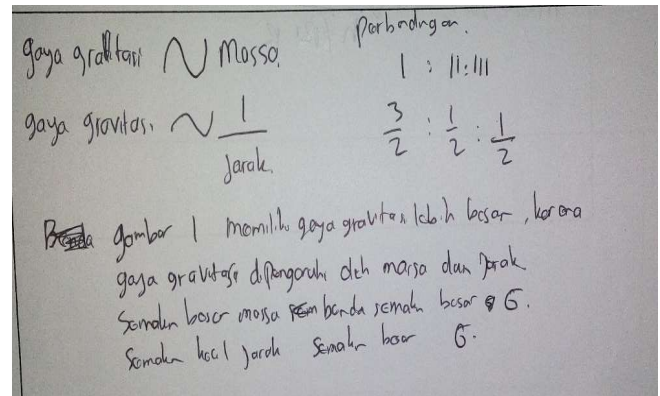 gaya gravitasi ~ Massa.
gaya gravitasi ~ 1/Jarak.
Perbandingan.
I : II : III
3/2 : 1/2 : 1/2
gambar I memiliki gaya gravitasi lebih besar, karena
gaya gravitasi dipengaruhi oleh massa dan jarak
Semakin besar massa benda semakin besar G.
Semakin kecil jarak semakin besar G.